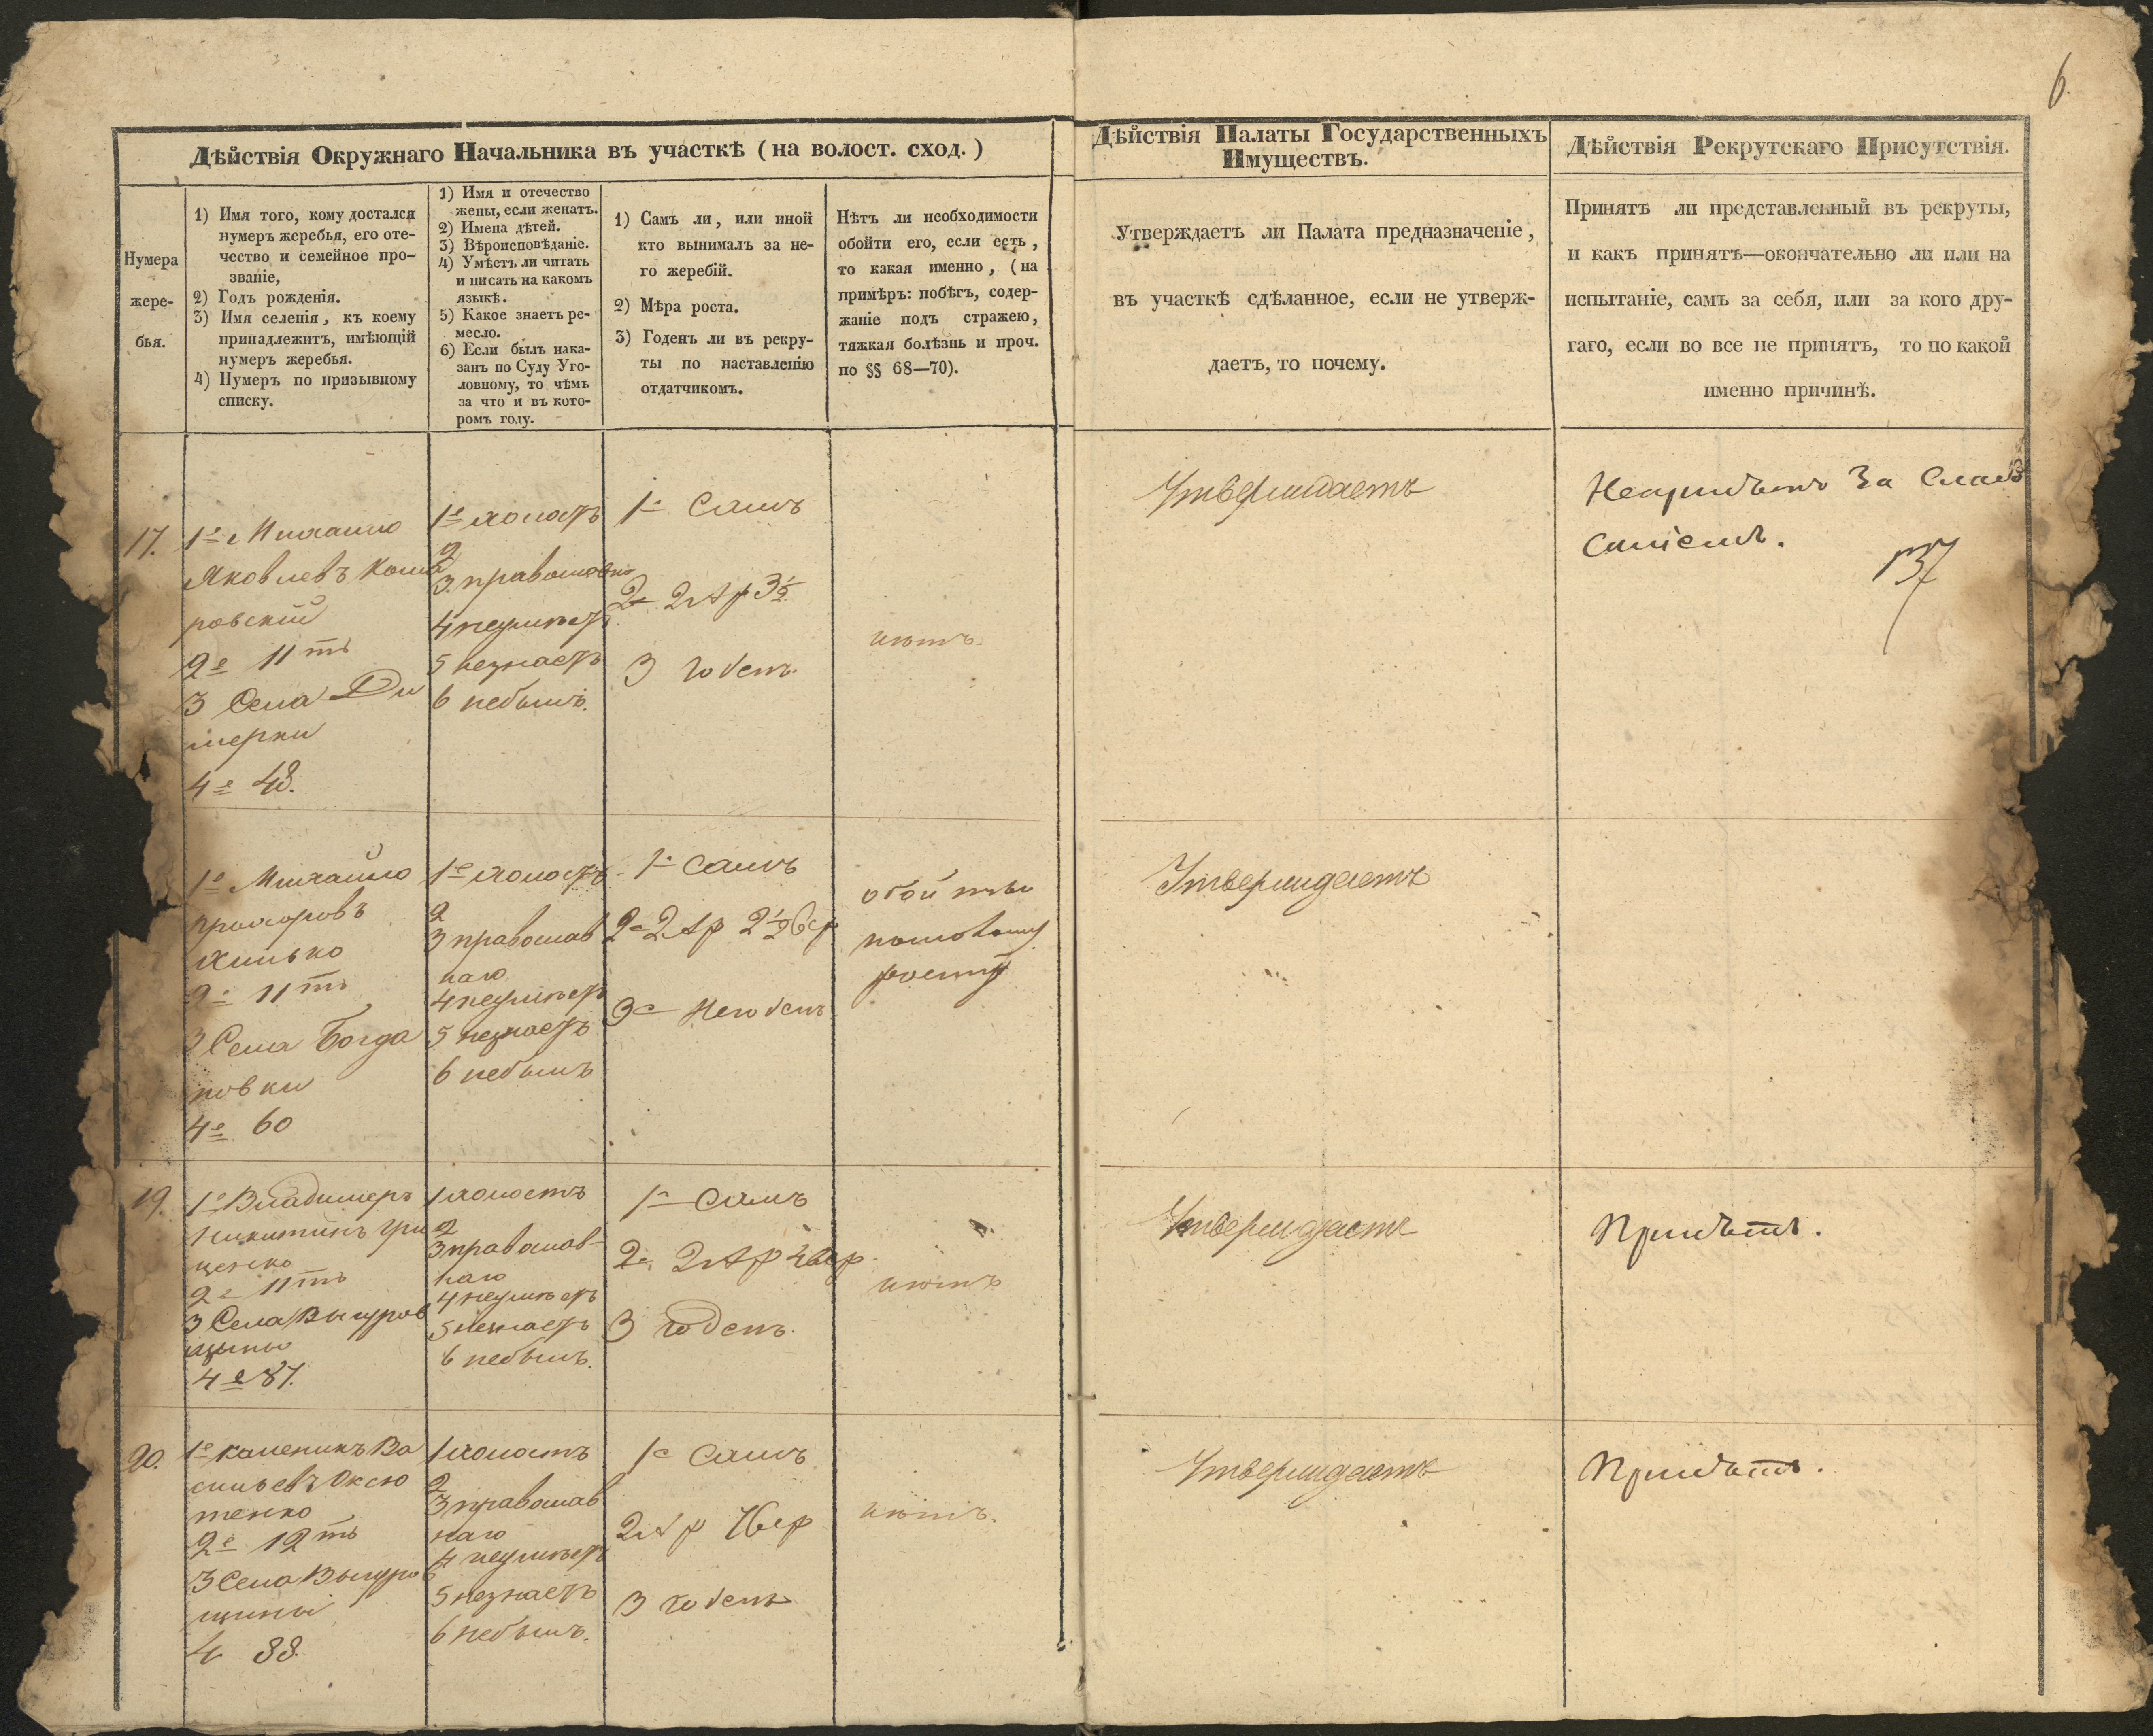 6.
Дѣйствія Окружнаго Начальника въ участкѣ (на волост. сход.)
Дѣйствія Палаты Государственныхъ
Имуществъ.
Дѣйствія Рекрутскаго Присутствія.
Нумера
жере-
бья.
1) Имя того, кому достался
нумеръ жеребья, его оте-
чество и семейное про-
званіе,
2) Годъ рожденія.
3) Имя селенія, къ коему
принадлежитъ, имѣющій
нумеръ жеребья.
4) Нумеръ по призывному
списку.
1) Имя и отечество
жены, если женатъ.
2) Имена дѣтей.
3) Вѣроисповѣданіе.
4) Умѣетъ ли читать
и писать на какомъ
языкѣ.
5) Какое знаетъ ре-
месло.
6) Если былъ нака-
занъ по Суду Уго-
ловному, то чѣмъ
за что и въ кото-
ромъ году.
1) Самъ ли, или иной
кто вынималъ за не-
го жеребій.
2) Мѣра роста.
3) Годенъ ли въ рекру-
ты по наставленію
отдатчикомъ.
Нѣтъ ли необходимости
обойти его, если есть,
то какая именно, (на
примѣръ: побѣгъ, содер-
жаніе подъ стражею,
тяжкая болѣзнь и проч.
по §§ 68—70).
Утверждаетъ ли Палата предназначеніе,
въ участкѣ сдѣланное, если не утверж-
даетъ, то почему.
Принятъ ли представленный въ рекруты,
и какъ принятъ—окончательно ли или на
испытаніе, самъ за себя, или за кого дру-
гаго, если во все не принятъ, то по какой
именно причинѣ.
17.
1е Михайло
Яковлевъ Кома
ровскій
2е 11ть
3 Села Ди
мерки
4е 48.
1е холостъ
2
3 православн
4 неумѣетъ
5 незнаетъ
6 небылъ.
1е Самъ
2е 2 Ар 3½
3 годенъ.
нѣтъ.
Утверждаетъ
Непринятъ За Слаб
137
1е Михайло
Прохоровъ
Хилько
2е 11ть
3 Села Богда
новки
4е 60
1е холостъ
2
3 православ
наго
4 неумѣетъ
5 незнаетъ
6 небылъ
1е самъ
2е 2 Ар 2½ вер
3е Негоденъ
обойти
по
росту
Утверждаетъ
19.
1е Владимеръ
Никитинъ Гри
ценко
2е 11ть
3 Села Выгуров
щины
4е 87.
1 холостъ
2
3 православ-
наго
4 неумѣетъ
5 незнаетъ
6 небылъ.
1е Самъ
2е 2 Ар 4 вер
3 годенъ.
нѣтъ
Утверждаетъ
Принятъ.
20.
1е Каленикъ Ва
сильевъ Оксю
тенко
2е 12ть
3 Села Выгуров
щины
4 88.
1 холостъ
2
3 православ
наго
4 неумѣетъ
5 незнаетъ
6 небылъ.
1е Самъ
2 Ар 7 вер
3 годенъ
нѣтъ.
Утверждаетъ
Принятъ.